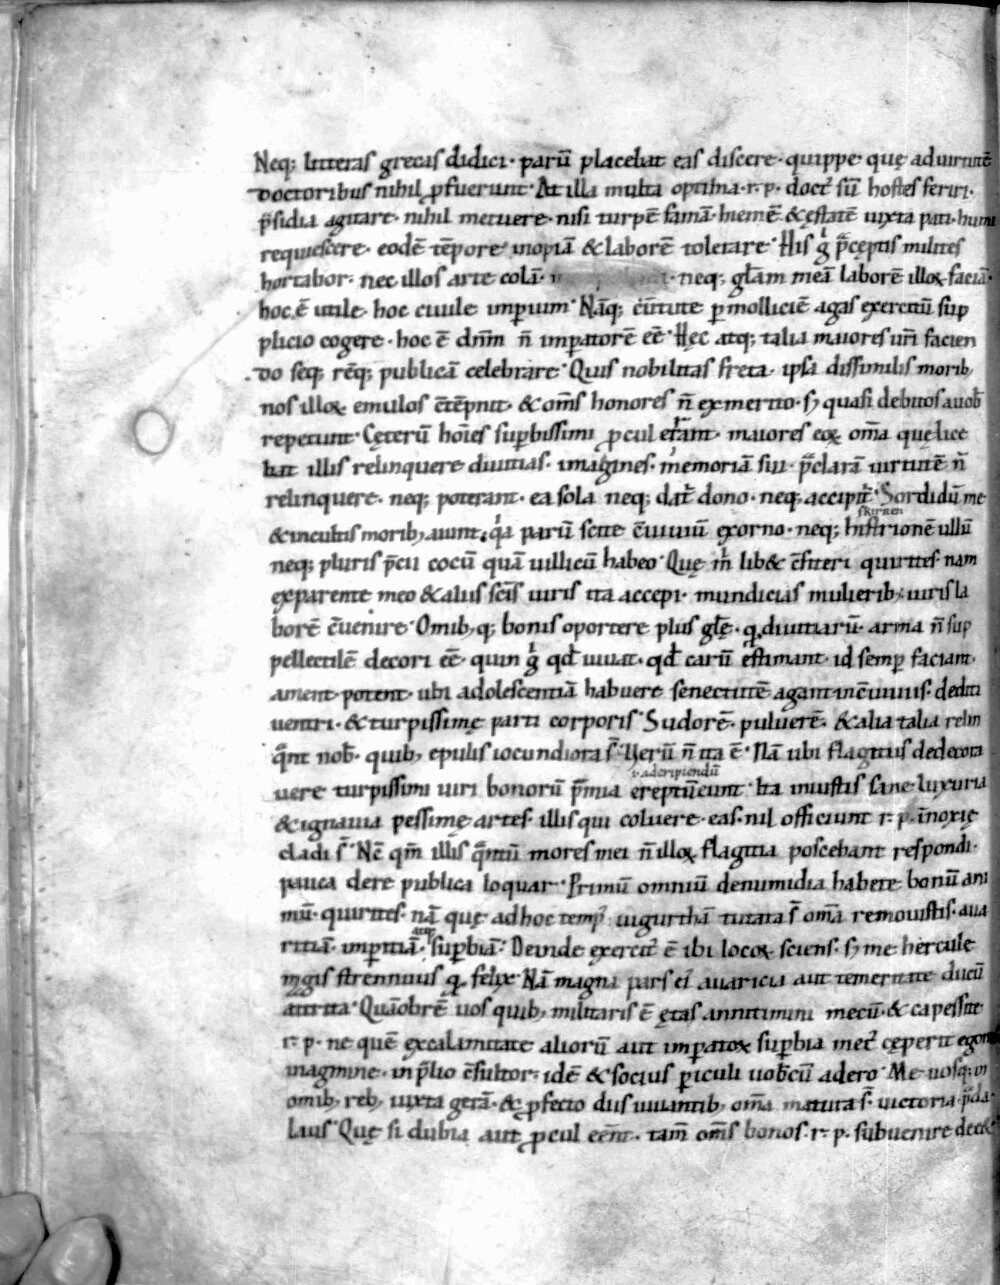 Neq; litteras grecas didici· parū placebat eas discere· quippe quę ad uirtutē
doctoribus nihil ꝓfuerunt· At illa multa optima· r· p· doct᷒ sū hostes ferire·
p̄sidia agitare· nihil metuere· nisi turpē famā· hiemē & ęstatē iuxta pati· humi
requiescere· eodē tēpore inopiā & laborē tolerare· His g̍ p̄cęptis milites
hortabor· nec illos arte colā· neq; gl̄am meā laborē illoꝝ faciā·
hoc ē utile· hoc ciuile imꝑium· Nāq; cū tute ꝑ mollicię agas exercitū sup
plicio cogere· hoc ē dn̄m n̄ imꝑatorē ee᷒· Hęc atq; talia maiores ur̄i facien
do seq; rēq; publicā celebrare· Quis nobilitas freta· ipsa dissimilis morib;
nos illoꝝ emulos c̄tēpnit· & om̄s honores n̄ ex merito· s; quasi debitos a uob᷒
repetunt· Cęterū hoīes suꝑbissimi ꝓcul errant· maiores eoꝝ om̄a quę lice
bat illis relinquere diuitias· imagines· memoriā sui p̄clarā uirtutē n̄
relinquere· neq; poterant· ea sola neq; dat᷒ dono· neq; accipit᷒· Sordidū me
& incultis morib; aiunt· qa̍ parū scite c̄uiuiū exorno· neq; histrionē ullū
neq; pluris p̄cii cocū quā uillicū habeo· Quę m̍ lib& c̄fiteri quirites· nam
ex parente meo & aliis sc̄is uiris ita accepi· mundicias mulierib; uiris la
borē c̄uenire· Omib; q; bonis oportere plus gl̄ę· q̄ diuitiarū· arma n̄ sup
pellectilē decori ee᷒· quin g̍ qd̄ iuuat· qd̄ carū estimant· id semꝑ faciant·
ament· potent· ubi adolescentiā habuere senectutē agant in c̄uiuiis· dediti
uentri· & turpissimę parti corporis· Sudorē· puluerē· & alia talia relin
q̄nt nob᷒· quib; epulis iocundiora s̄· Uerū n̄ ita ē· Nā ubi flagitiis dedecora
uere turpissimi uiri bonorū p̄mia ereptū eunt· Ita iniustis sane luxuria
& ignauia pessimę artes· illis qui coluere eas· nil officiunt r· p· inoxię
cladi s̄· Nc̄ qm̄ illis q̄ntū mores mei n̄ illoꝝ flagitia poscebant respondi·
pauca de re publica loquar· Primū omniū de numidia habete bonū ani
mū· quirites· nā quę ad hoc temp᷒ iugurthā tutata s̄ om̄a remouistis· aua
ritiā· imꝑitiā· suꝑbiā· Deinde exercit᷒ ē ibi locoꝝ sciens· s; me hercule
magis strennuus q̄ felix· Nā magna pars ei᷒ auaricia aut temeritate ducū
attrita· Quāobrē uos quib; militaris ē ętas annitimini mecū· & capessite
r· p· ne quē ex calamitate aliorū aut imꝑatoꝝ suꝑbia met᷒ cęperit ego
in agmine· in p̄lio c̄sultor· idē & socius ꝑiculi uobc̄ū adero· Me uosq; in
omib; reb; iuxta gerā· & ꝓfecto diis iuuantib; om̄a matura s̄· uictoria· p̄da·
laus· Quę si dubia aut ꝓcul eēnt· tam̄ om̄s bonos· r· p· subuenire dec&·